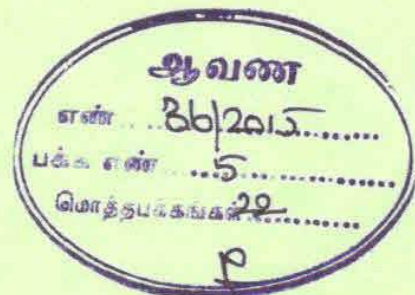 ஆவண
எண் ... 36/2015
பக்க எண் ... 5
மொத்தபக்கங்கள் 22